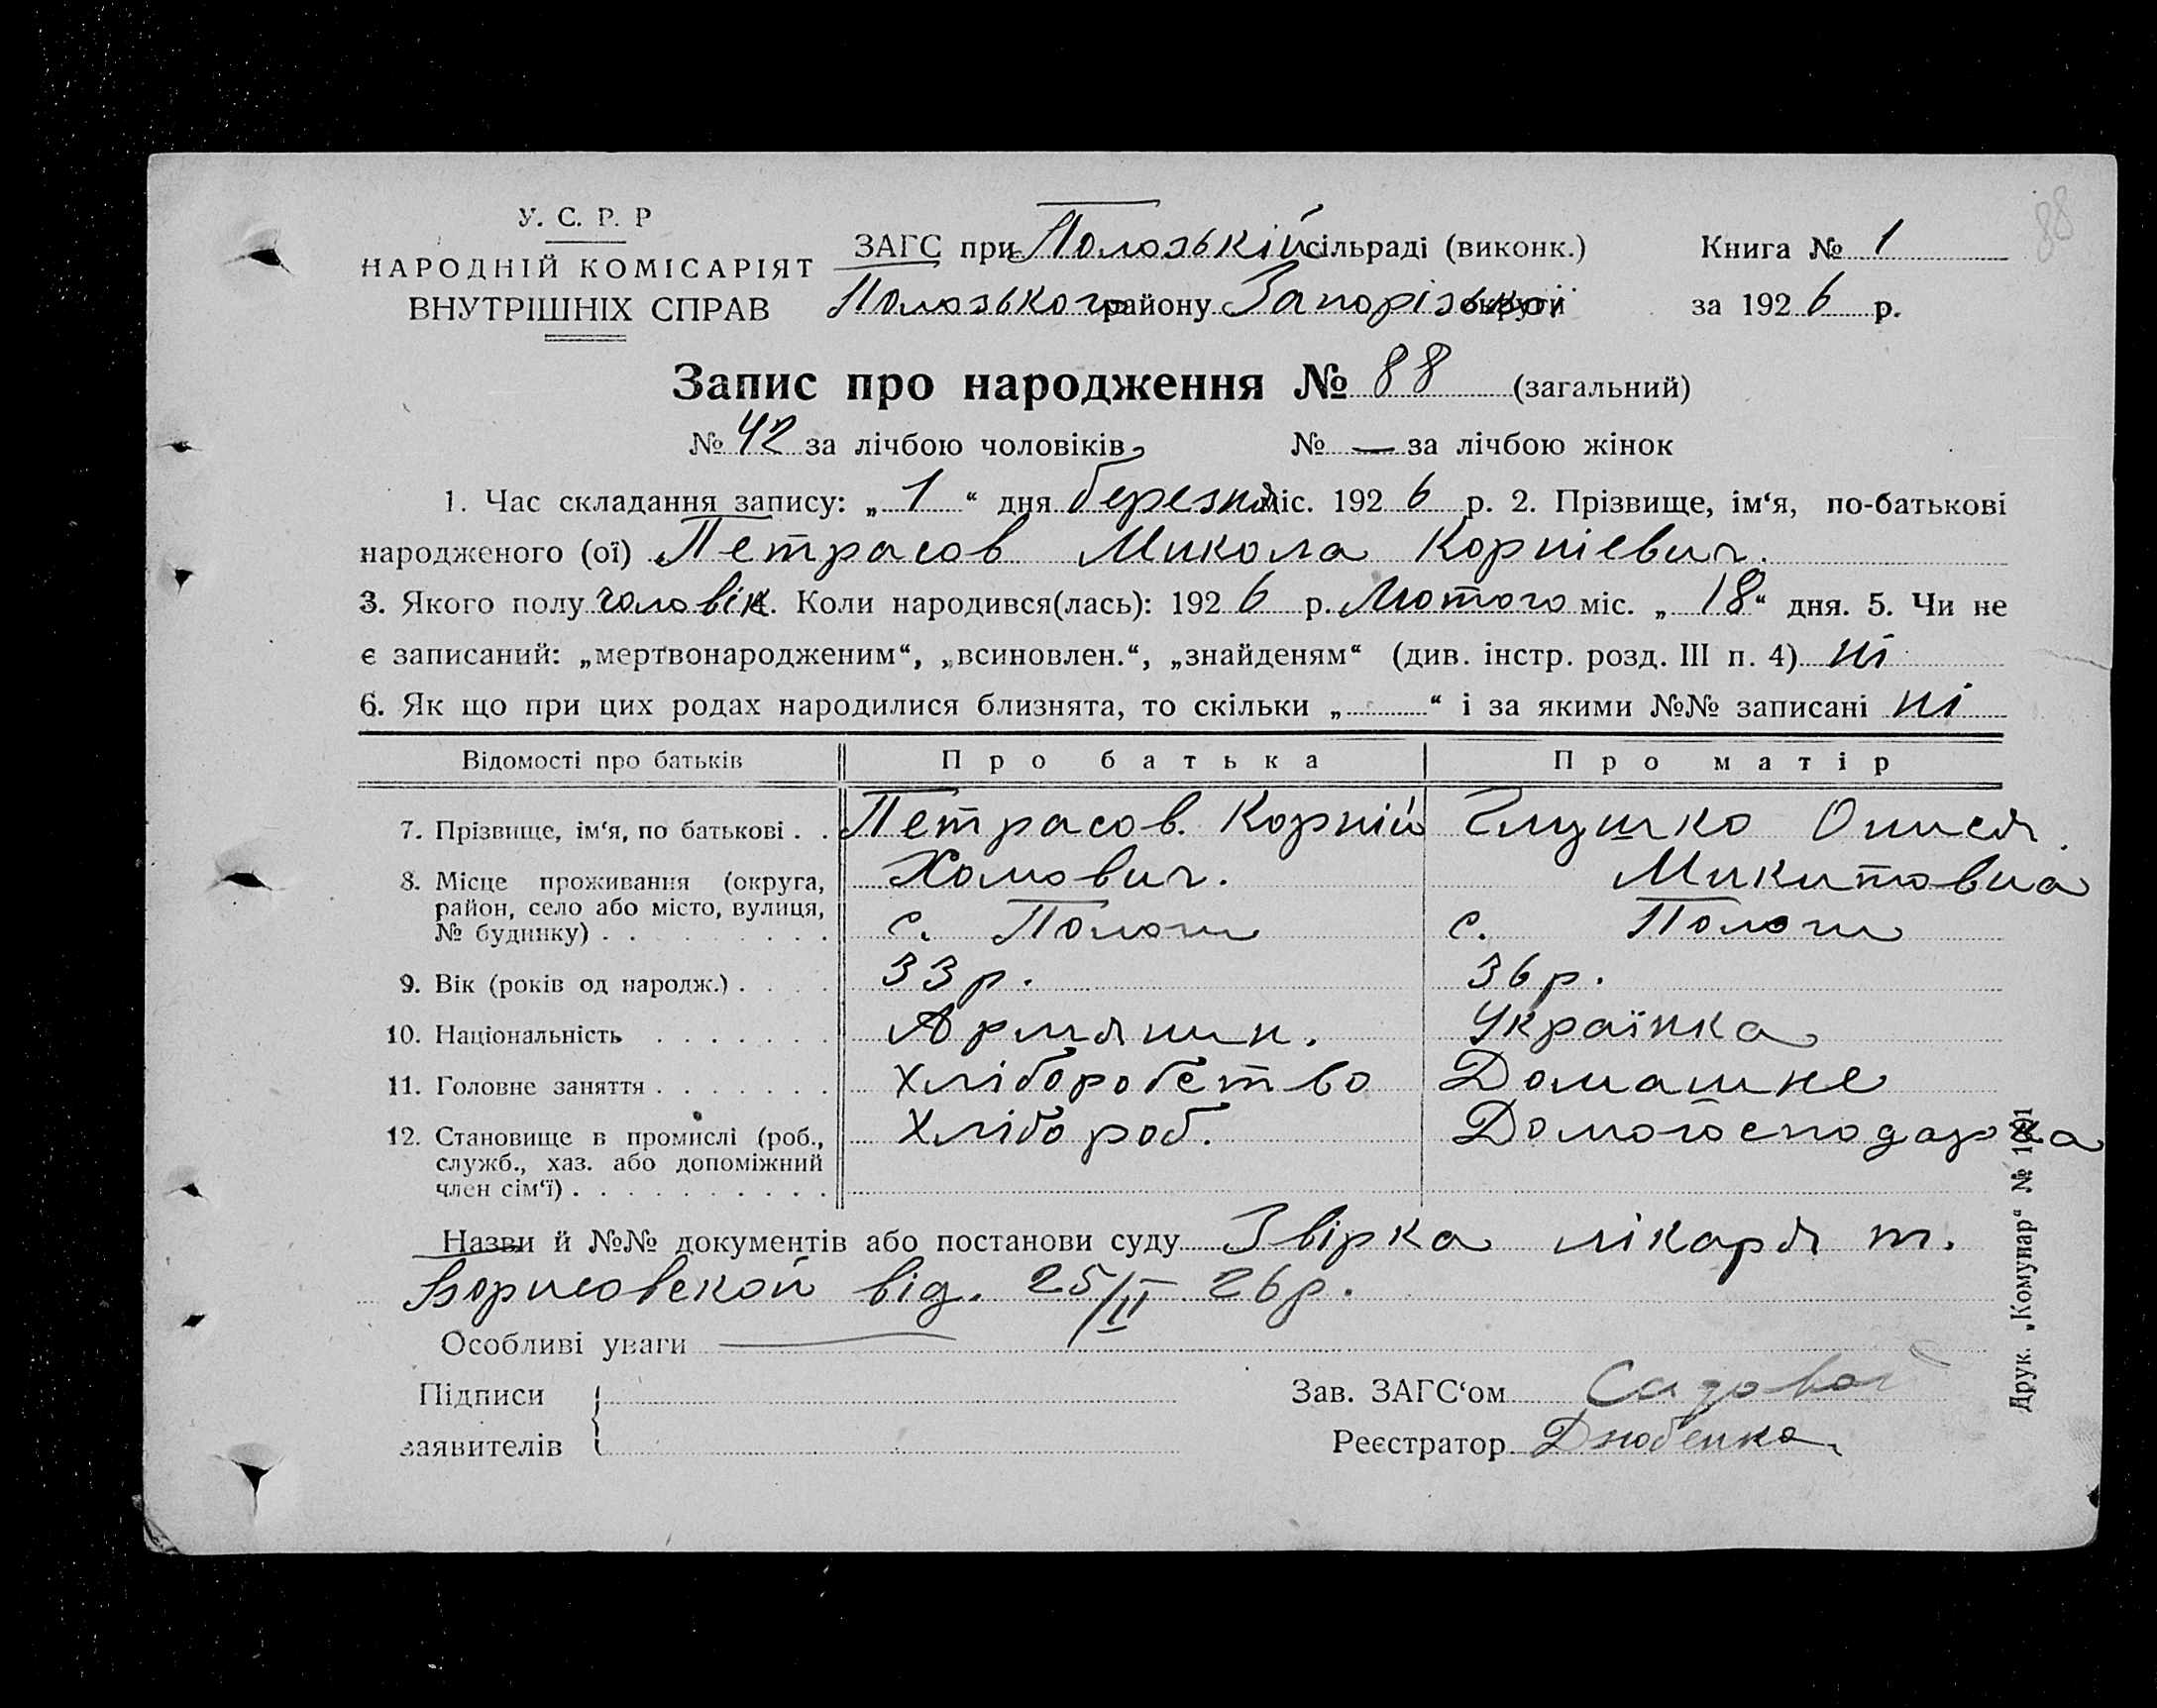 У. С. Р. Р
НАРОДНІЙ КОМІСАРІЯТ
ВНУТРІШНІХ СПРАВ
ЗАГС при Полозькій сільраді (виконк.)
Полозького району Запорізької округи
Книга № 1
за 1926 р.
88
Запис про народження № 88 (загальний)
№ 42 за лічбою чоловіків № — за лічбою жінок
1. Час складання запису: „1“ дня березня міс. 1926 р. 2. Прізвище, ім‘я, по-батькові
народженого (ої) Петрасов Микола Корнієвич.
3. Якого полу чоловік. Коли народився(лась): 1926 р. Лютого міс. „18“ дня. 5. Чи не
є записаний: „мертвонародженим“, „всиновлен.“, „знайденям“ (див. інстр. розд. III п. 4) ні
6. Як що при цих родах народилися близнята, то скільки „ “ і за якими №№ записані ні
Відомості про батьків Про батька Про матір
7. Прізвище, ім‘я, по батькові . . Петрасов. Корній Глушко Оп
Хомович. Микитовна
8. Місце проживання (округа,
район, село або місто, вулиця,
№ будинку) . . . . . . . . . с. Пологи с. Пологи
9. Вік (років од народж.) . . . . 33 р. 36 р.
10. Національність . . . . . . . Армянин. Українка
11. Головне заняття . . . . . . . хліборобство Домашнє
12. Становище в промислі (роб., Хлібороб. Домогосподарка
служб., хаз. або допоміжний
член сім‘ї) . . . . . . . . . .
Назви й №№ документів або постанови суду Звірка лікаря т.
Борисовской від. 25/II 26 р.
Особливі уваги —
Підписи
заявителів
Зав. ЗАГС‘ом Садовой
Реєстратор Дзюбенко
Друк. „Комунар“ №